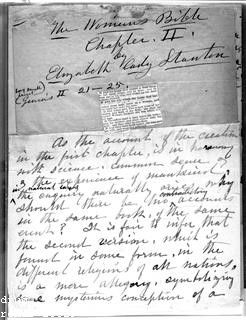 The Woman's Bible
Chapter II.
by
Elizabeth Cady Stanton
Genesis II 21-25.
As the account of the creation
in the first chapter, is in harmony
with science, common sense, &
the experience of mankind,
in natural laws,
the enquiry naturally arises, why
should there be two contradictory accounts
in the same book, of the same
event? It is fair to infer that
the second version, which is
found in some form, in the
different religions of all nations,
is a mere allegory, symbolizing
some mysterious conception of a